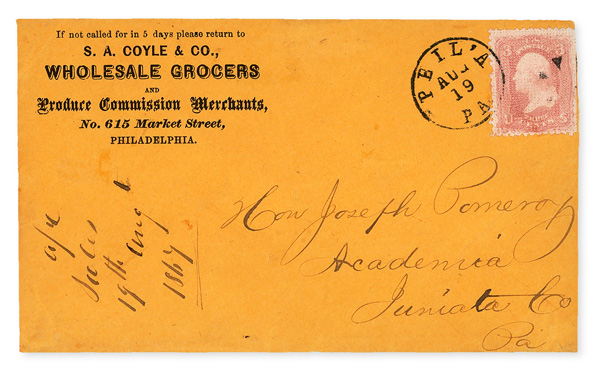 If not called for in 5 days please return to
S. A. COYLE & CO.,
WHOLESALE GROCERS
AND
Produce Commission Merchants,
No. 615 Market Street,
PHILADELPHIA.
PHIL'A
AUG
19
PA
3 3
U S
Hon Joseph Pomeroy
Academia
Juniata Co
Pa
a/c
Sales
19th Aug t
1867